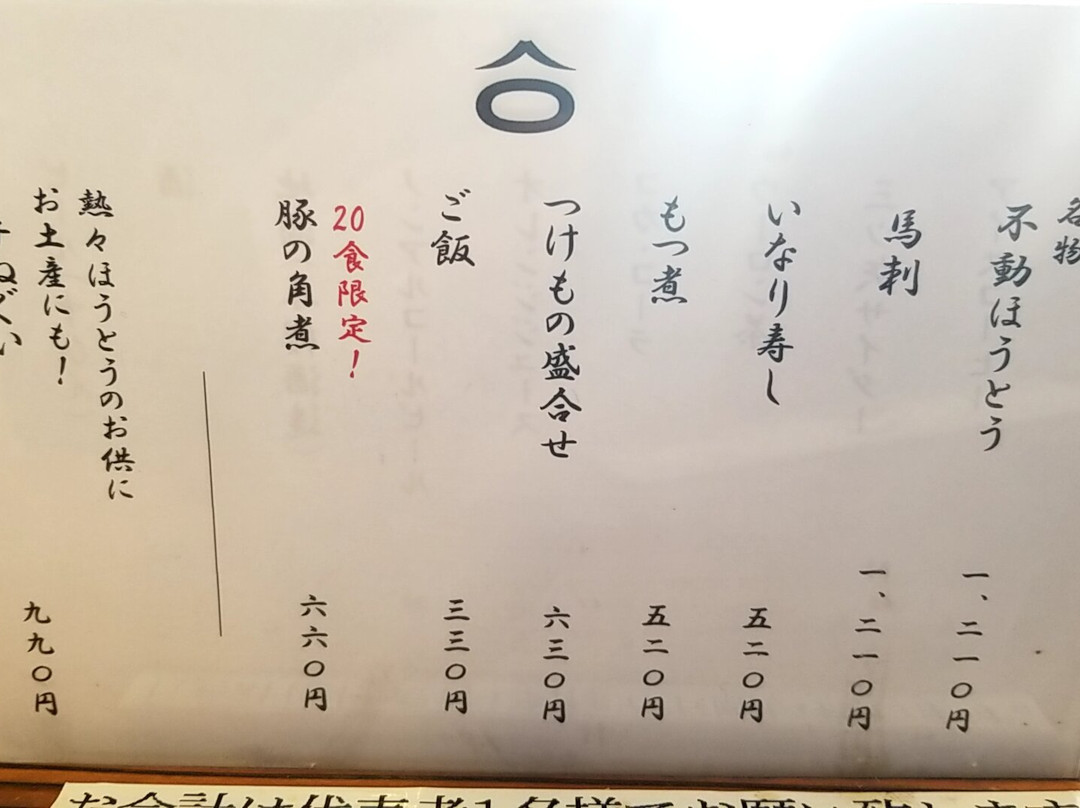 名物
不動ほうとう 一、二一〇円
馬刺 一、二一〇円
いなり寿し 五二〇円
もつ煮 五二〇円
つけもの盛合せ 六三〇円
ご飯 三三〇円
20食限定!
豚の角煮 六六〇円
熱々ほうとうのお供に
お土産にも!
九九〇円
お会計は代表者1名様でお願い致します